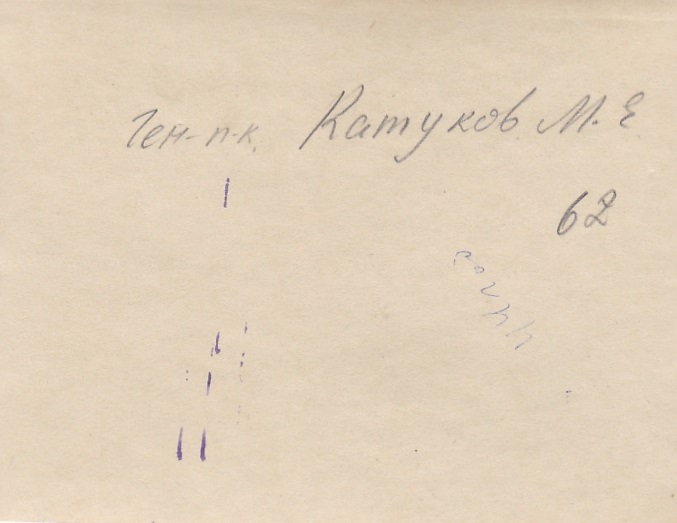 Ген-п-к. Катуков М. Е
62